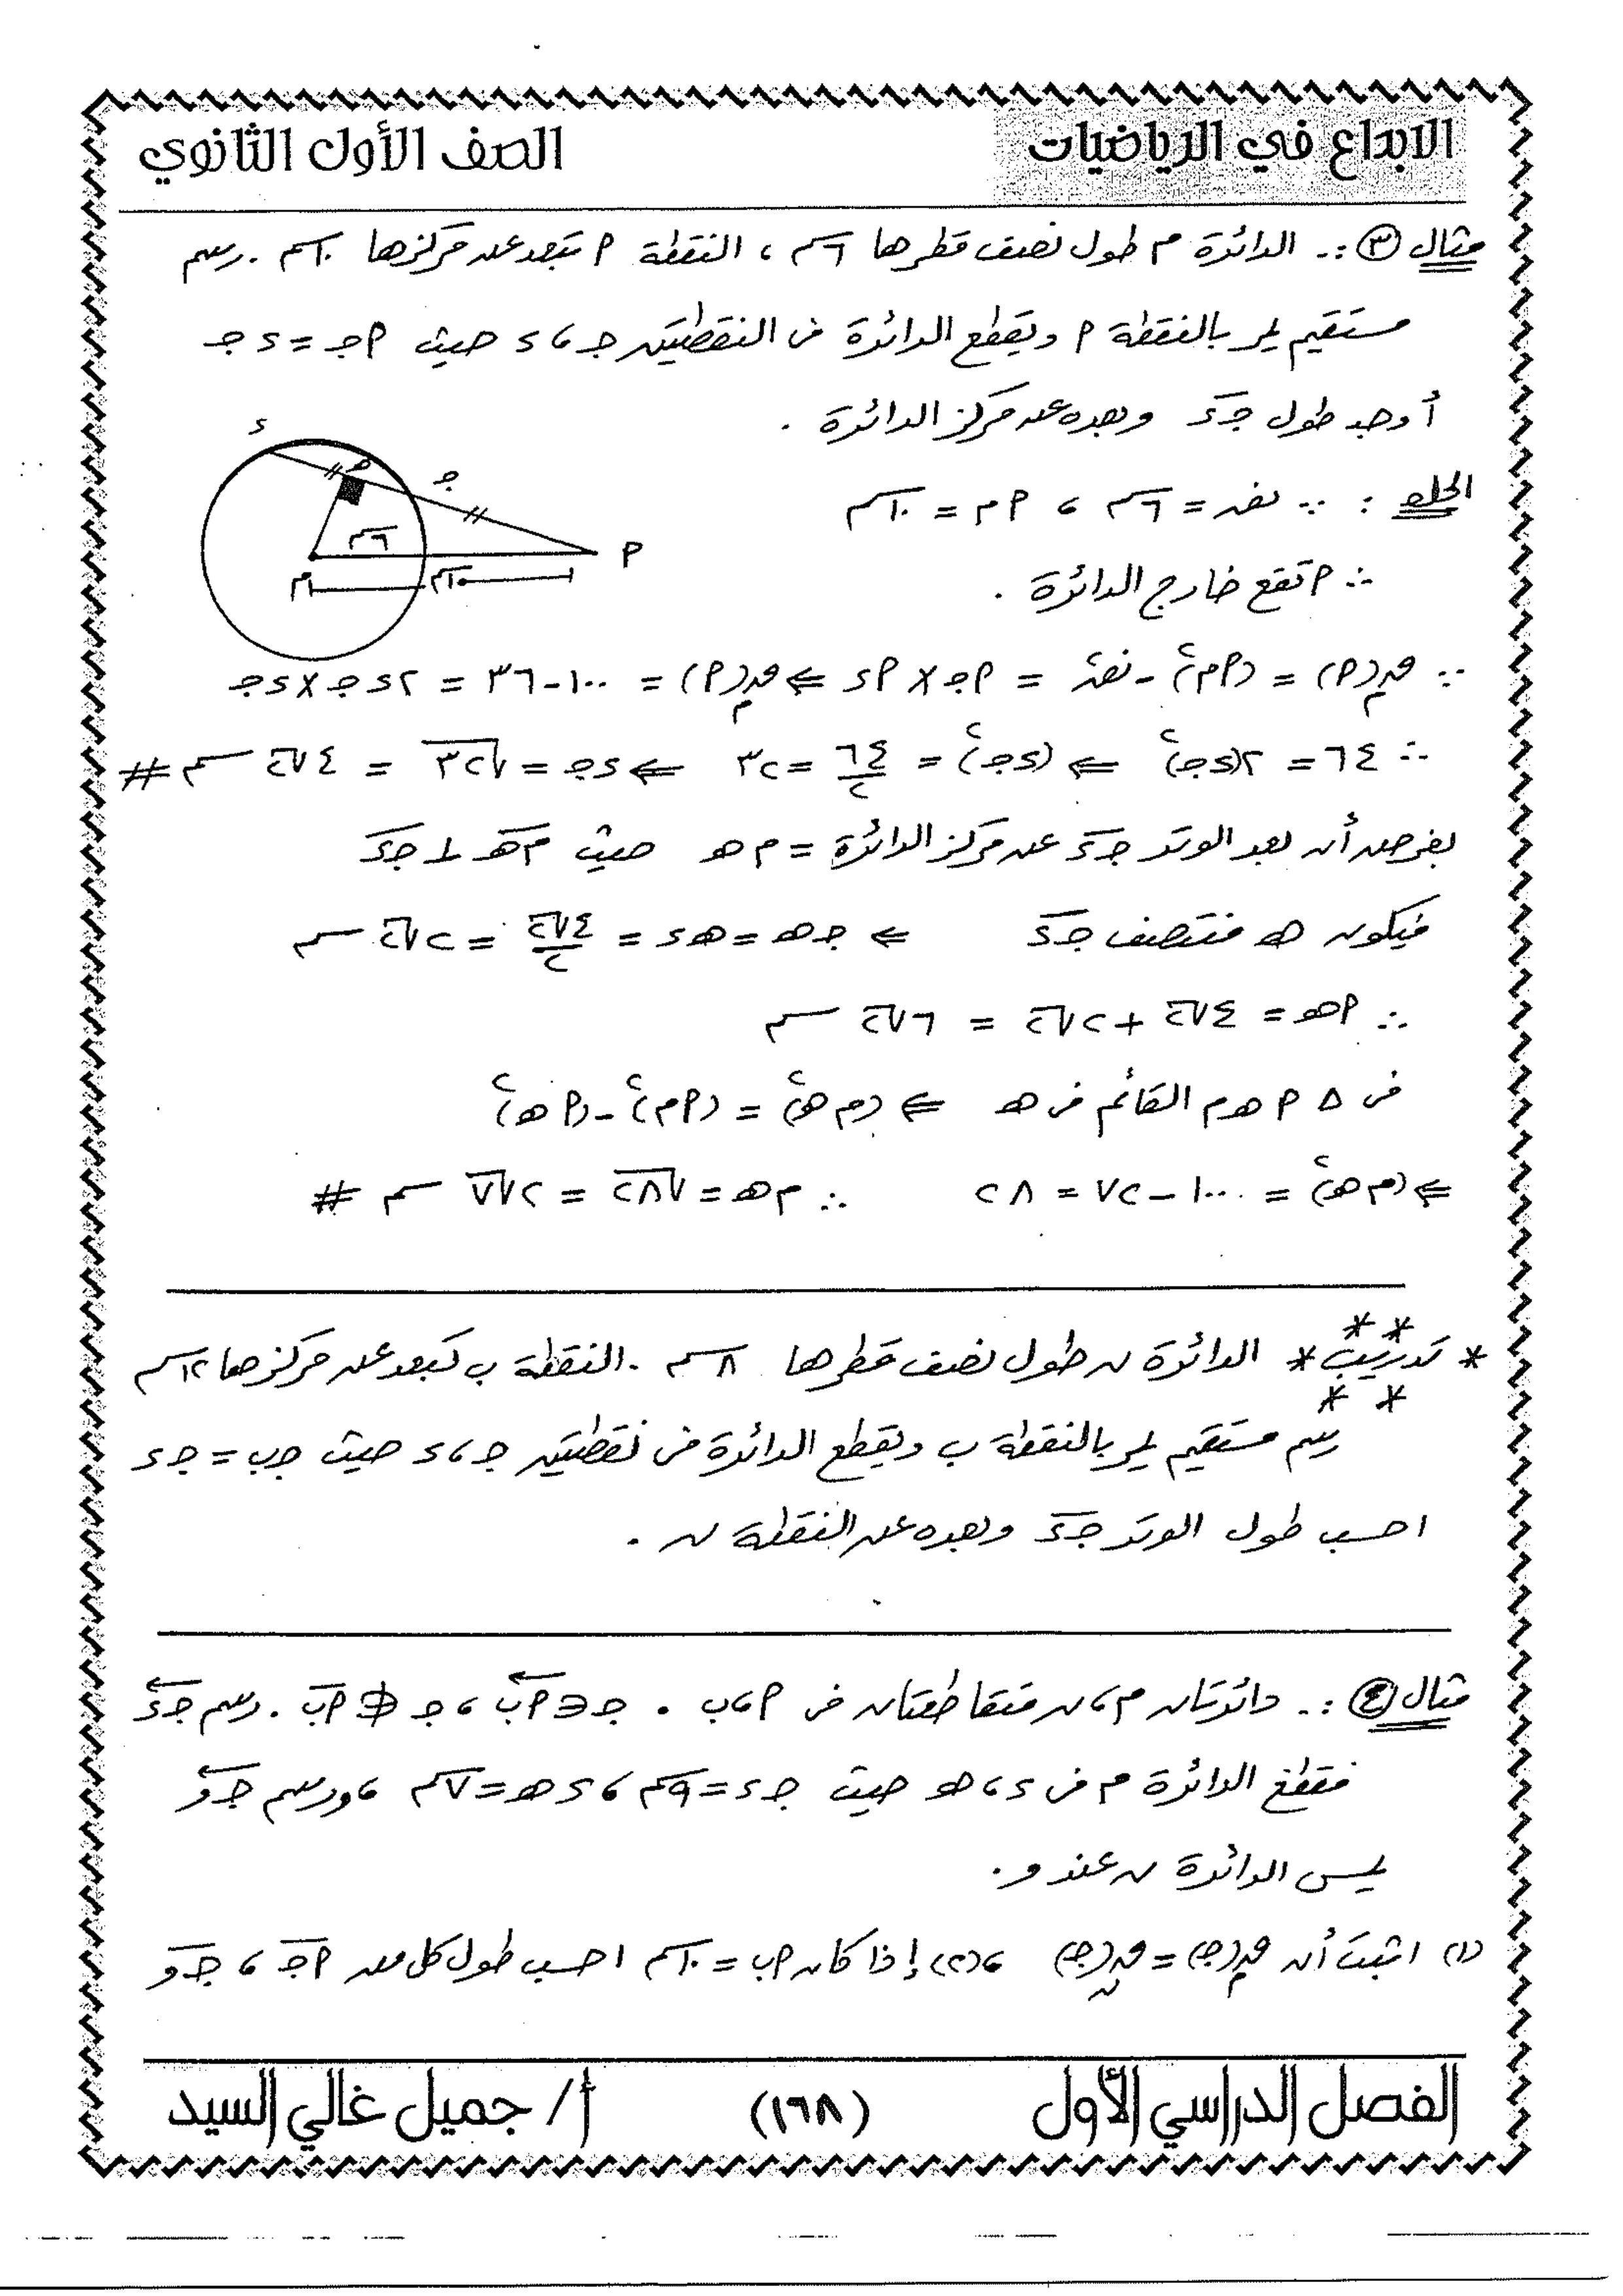 الابداع في الرياضيات
الصف الأول الثانوي
مثال (٣) :. الدائرة م طول نصف قطرها ٦سم ، النقطة P تبعد عن مركزها ١٠سم . رسم
مستقيم يمر بالنقطة P ويقطع الدائرة فى النقطتين جـ ، s حيث Pجـ = sجـ
أوجد طول جـs وبعده عن مركز الدائرة .
s
هـ
جـ
٦سم
P
م
١٠سم
الحل : ∵ نق = ٦سم ، Pم = ١٠سم
∴ P تقع خارج الدائرة .
∵ قم(P) = (Pم)٢ - نق٢ = Pجـ × Ps ⇐ قم(P) = ١٠٠ - ٣٦ = ٢sجـ × sجـ
∴ ٦٤ = ٢(sجـ)٢ ⇐ (sجـ)٢ = ٦٤/٢ = ٣٢ ⇐ sجـ = √٣٢ = ٤√٢ سم #
بفرض أن بعد الوتر جـs عن مركز الدائرة = م هـ حيث م هـ ⊥ جـs
فيكون هـ منتصف جـs ⇐ جـهـ = هـs = ٤√٢/٢ = ٢√٢ سم
∴ Pهـ = ٤√٢ + ٢√٢ = ٦√٢ سم
فى Δ P هـ م القائم فى هـ ⇐ (م هـ)٢ = (Pم)٢ - (Pهـ)٢
⇐ (م هـ)٢ = ١٠٠ - ٧٢ = ٢٨ ∴ م هـ = √٢٨ = ٢√٧ سم #
* تدريب * الدائرة ن طول نصف قطرها ٨ سم . النقطة ب تبعد عن مركزها ١٢سم
رسم مستقيم يمر بالنقطة ب ويقطع الدائرة فى نقطتين جـ ، s حيث جـب = جـs
احسب طول الوتر جـs وبعده عن النقطة ن .
مثال (٤) :. دائرتان م ، ن متقاطعتان فى P ، ب . جـ ∈ Pب ، جـ ∉ Pب . رسم جـs
فقطع الدائرة م فى s ، هـ حيث جـs = ٩سم ، sهـ = ٧سم ، ورسم جـو
يمس الدائرة ن عند و .
(١) اثبت أن قم(جـ) = قن(جـ) ، (٢) إذا كان Pب = ١٠سم احسب طول كل من Pجـ ، جـو
الفصل الدراسي الأول
(١٦٨)
أ/ جميل غالي السيد